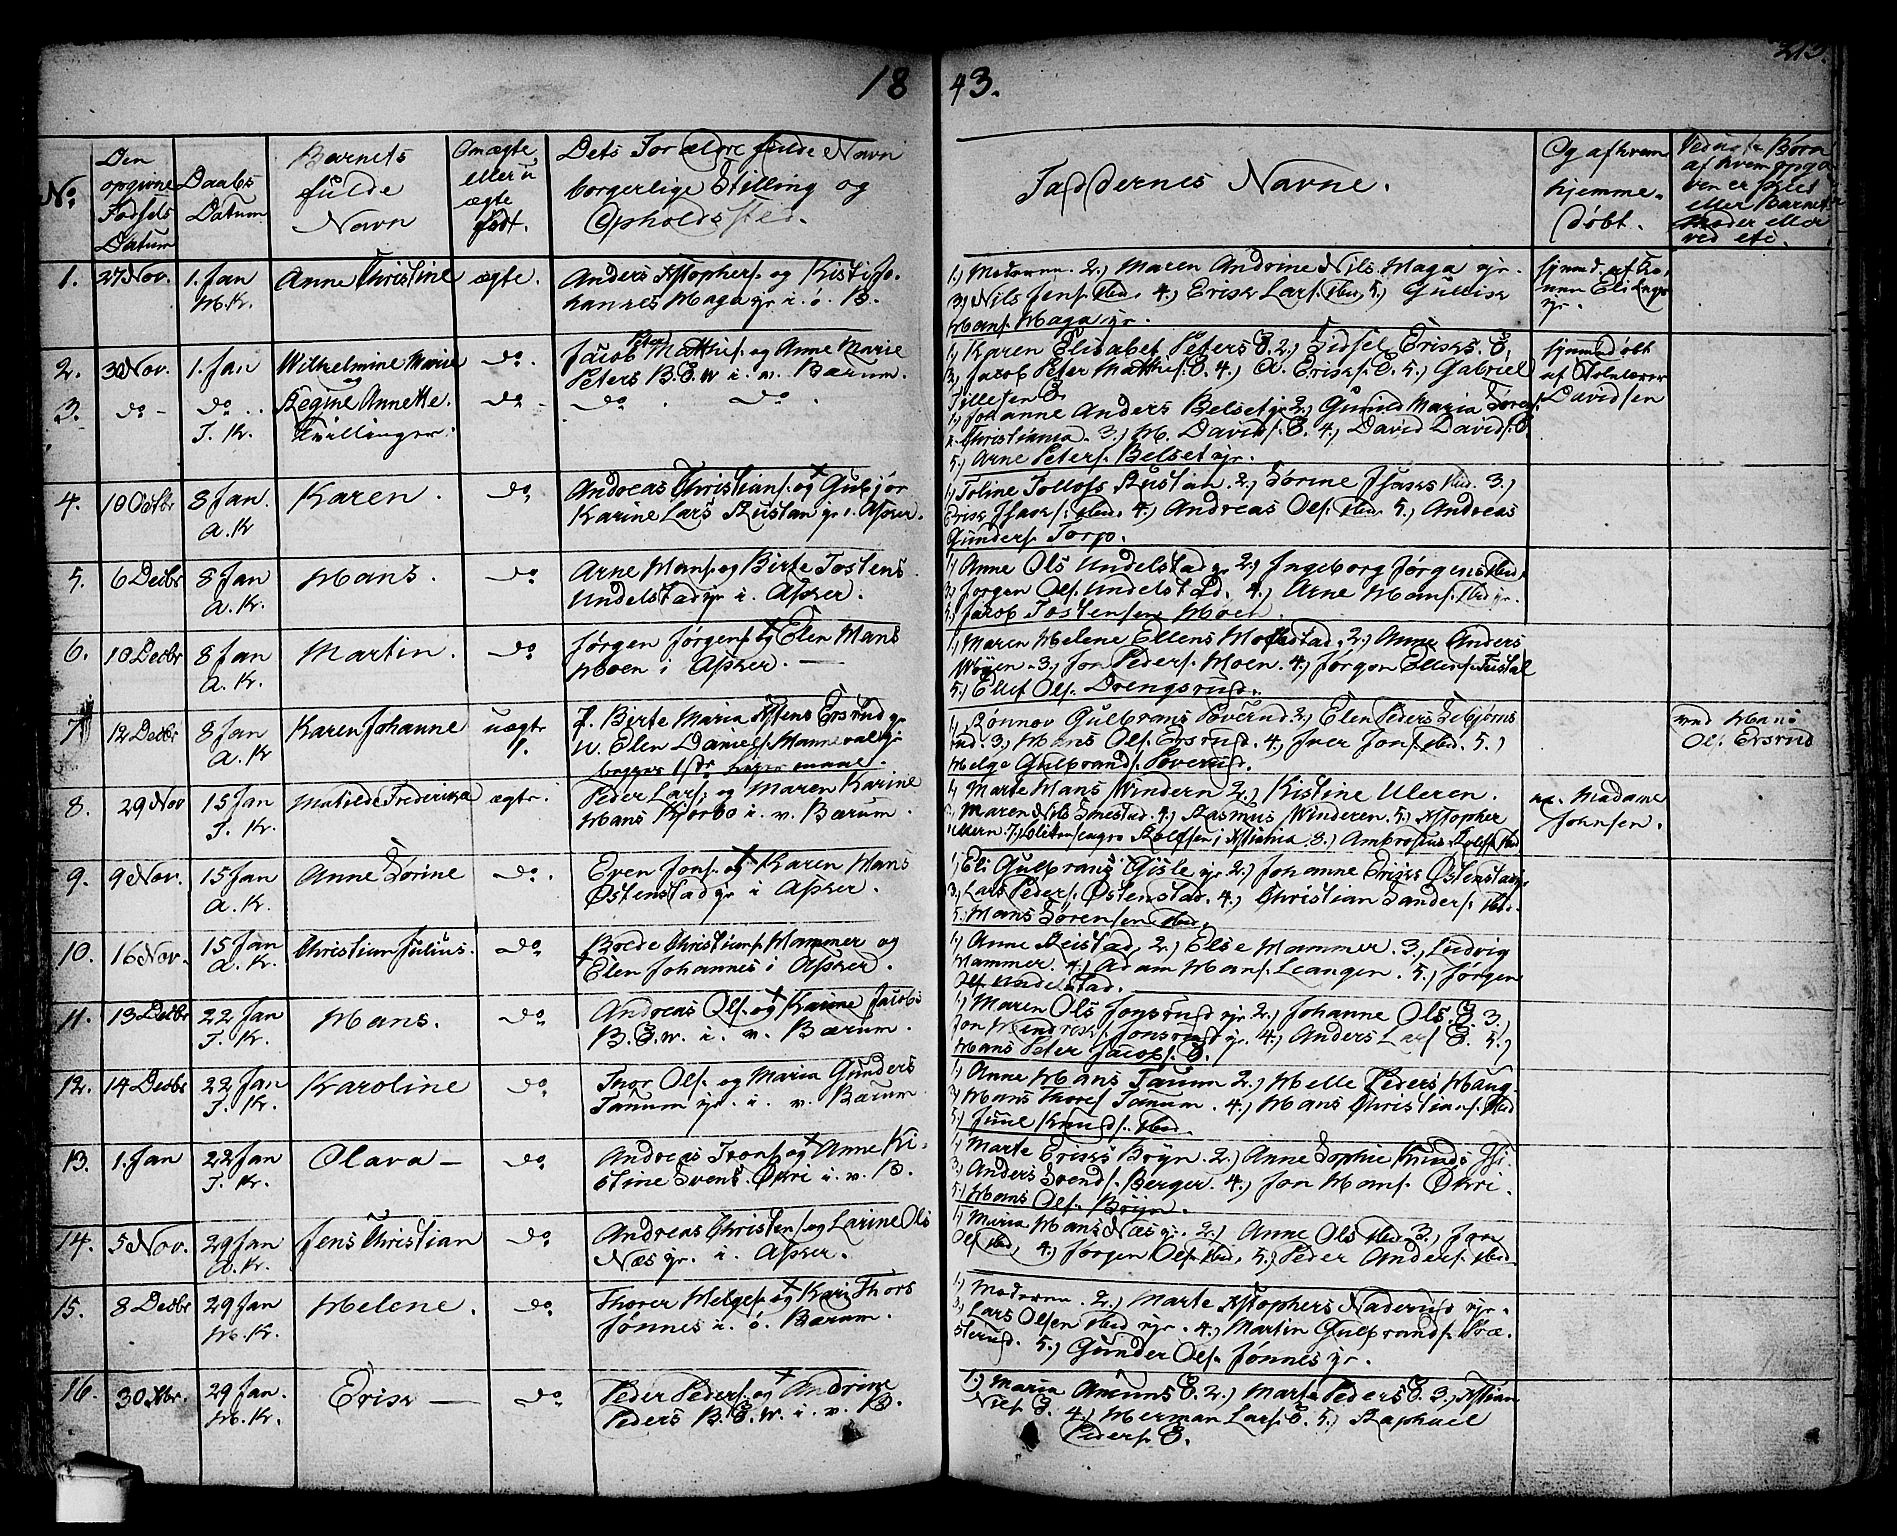 1843.
213.
No.
Den opgivne Fødsels Datum
Daabs Datum
Barnets fulde Navn
Om ægte eller uægte født.
Dets Forældre fulde Navn borgerlige Stilling og Opholdssted.
Faddernes Navne.
Og af hvem hjemmedøbt.
1. 27 Nov. 1. Jan H. K. Anne Christine ægte.
Anders Kstophers. og Kisti Jo-
hannes Haga yr. i. ø. B.
1.) Moderen. 2.) Maren Andrine Nils Haga yr.
3.) Nils Jens. sted. 4.) Erik Lars. sted. 5.) Gullik
Hans. Haga yr.
2. 30 Nov. 1. Jan Wilhelmine Marie do.
og
Jacob Peter Matthis. og Anne Marie
Peters B. E. W i. v. Bærum.
1.) Karen Elisabet Peters E. 2.) Sidsel Eriks. E.
3.) Jacob Peter Matthis. E. 4.) O. Eriks. E. 5.) Gabriel
Tillesen E.
hjemmedøbt
af Skolelærer
Davidsen
3. do - do. J. K. Regine Annette. do - do. do.
Tvillinger.
1.) Johanne Anders Belset yr. 2.) Gunild Maria Søren
Christiania. 3.) H. Davids. E. 4.) David Davids. E
5.) Arne Peters. Belset yr.
4. 10 Octbr 8 Jan. A. K Karen. do
Andreas Christians. og Gubjør
Karine Lars Rustan yr. i. Asker.
1.) Toline Tollofs Rustan. 2.) Sørine Isaks sted. 3.)
Erik Isaks. sted. 4.) Andreas Ols. sted. 5.) Andreas
Gunders. Torp.
5. 6 Decbr 8 Jan A. K. Hans. do
Arne Hans. og Birte Tostens
Undelstad yr i. Asker.
1.) Anne Ols Undelstad yr 2.) Ingeborg Jørgens sted.
3.) Jørgen Ols. Undelstad. 4.) Arne Hans. sted yr.
5.) Jacob Tostensen Moen.
6. 10 Decbr 8 Jan A. K. Martin. do
Jørgen Jørgens. og Elen Hans
Moen i Asker. —
1.) Maren Helene Ellens Hofstad. 2.) Anne Anders
Wøyen. 3.) Jon Peders. Moen. 4.) Jørgen Ellens. Tustal
5.) Ellef Ols. Drengsrud.
7. 12 Decbr 8 Jan A. K Karen Johanne uægte
F. Birte Maria Kstens Ersrud yr
U. Elen Daniels. Manneval yr
begges 1ste Leiermaal.
1.) Rønnov Gulbrans Soverud 2.) Elen Peders Sebjørns
rud. 3.) Hans Ols. Ersrud. 4.) Iver Jons. sted. 5.)
Helge Gulbrands. Soverud.
ved Hans
Ols. Ersrud
8. 29 Nov 15 Jan J. K. Matilde Frederikka ægte.
Peder Lars. og Maren Karine
Hans Kjørbo i. v. Bærum.
1.) Marte Hans Windern 2.) Kistine Uleren.
Maren Nils Smestad. 4.) Rasmus Winderen. 5.) Kstopher
Ullern. 7.) Rolfsen i Kstiania. 8.) Ambrosius Rolfs. sted
Madame
Johnsen.
9. 9 Nov. 15 Jan A. K. Anne Sørine do.
Even Jons. og Karen Hans
Østenstad yr i Asker.
1.) Eli Gulbrans Gisle yr 2.) Johanne Eriks Østenstad yr
3.) Lars Peders. Østenstad. 4.) Christian Sanders. sted.
5. Hans Sørensen sted.
10. 16 Nov. 15 Jan A. K. Christian Julius. do
Brede Christians. Hammer og
Elen Johannes i Asker.
1.) Anne Reistad, 2.) Else Hammer. 3.) Ludvig
Hammer. 4.) Adam Hans. Leangen. 5.) Jørgen
Ols. Undelstad.
11. 13 Decbr 22 Jan J. K. Hans. do
Andreas Ols. og Karine Jacobs
B. E. W. i. v. Bærum.
1.) Maren Ols Jonsrud yr. 2.) Johanne Ols. E 3.)
Jon Hendriks. Jonsrud yr. 4.) Anders Lars. E. 5.)
Hans Peter Jacobs. E.
12. 14 Decbr 22 Jan J. K. Karoline do
Thor Ols. og Maria Gunders
Tanum yr. i. v. Bærum
1.) Anne Hans Tanum 2.) Helle Peders Haug.
3.) Hans Thores. Tanum. 4.) Hans Christians. sted
5.) Juul Knuds. sted.
13. 1. Jan 22 Jan J. K. Olava — do
Andreas Trons. og Anne Ki-
stine Svens. Økri i. v. B.
1.) Marte Eriks Bryn. 2.) Anne Sophie Knuds
3.) Anders Svends. Berger. 4.) Jon Hans. Økri.
5.) Hans Ols. Bryn.
14. 5 Nov. 29 Jan A. K. Jens Christian do
Andreas Christens. og Larine Ols
Næs yr. i. Asker.
1.) Maria Hans Næs yr. 2.) Anne Ols sted. 3.) Jan
Ols. sted. 4.) Jørgen Ols. sted. 5.) Peder Anders. sted.
15. 8 Decbr 29 Jan H. K. Helene. do
Thorer Helges. og Kari Thors
Jønnes i. ø. Bærum.
1.) Moderen. 2.) Marte Kstophers Naderud yr.
3.) Lars Olsen sted yr. 4.) Martin Gulbrands. Præ-
sterud. 5.) Gunder Ols. Jønnes yr.
16. 30 Nbr. 29 Jan. H. K. Erik — do
Peder Peders. og Andrine
Peders B. E. W. i. v. B.
1.) Maria Amuns E. 2.) Marte Peders E. 3.) Kstian
Niels. E. 4.) Herman Lars. E. 5.) Raphael
Peders. E.